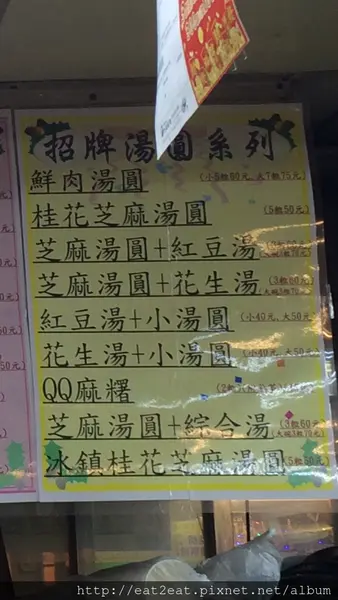 招牌湯圓系列
鮮肉湯圓
桂花芝麻湯圓 (5顆50元)
芝麻湯圓+紅豆湯
芝麻湯圓+花生湯 (3顆60元
紅豆湯+小湯圓 (小40元、大50元)
花生湯+小湯圓 (小40元、大50元)
QQ麻糬
芝麻湯圓+綜合湯 (3顆60元
冰鎮桂花芝麻湯圓
http://eat2eat.pixnet.net/album